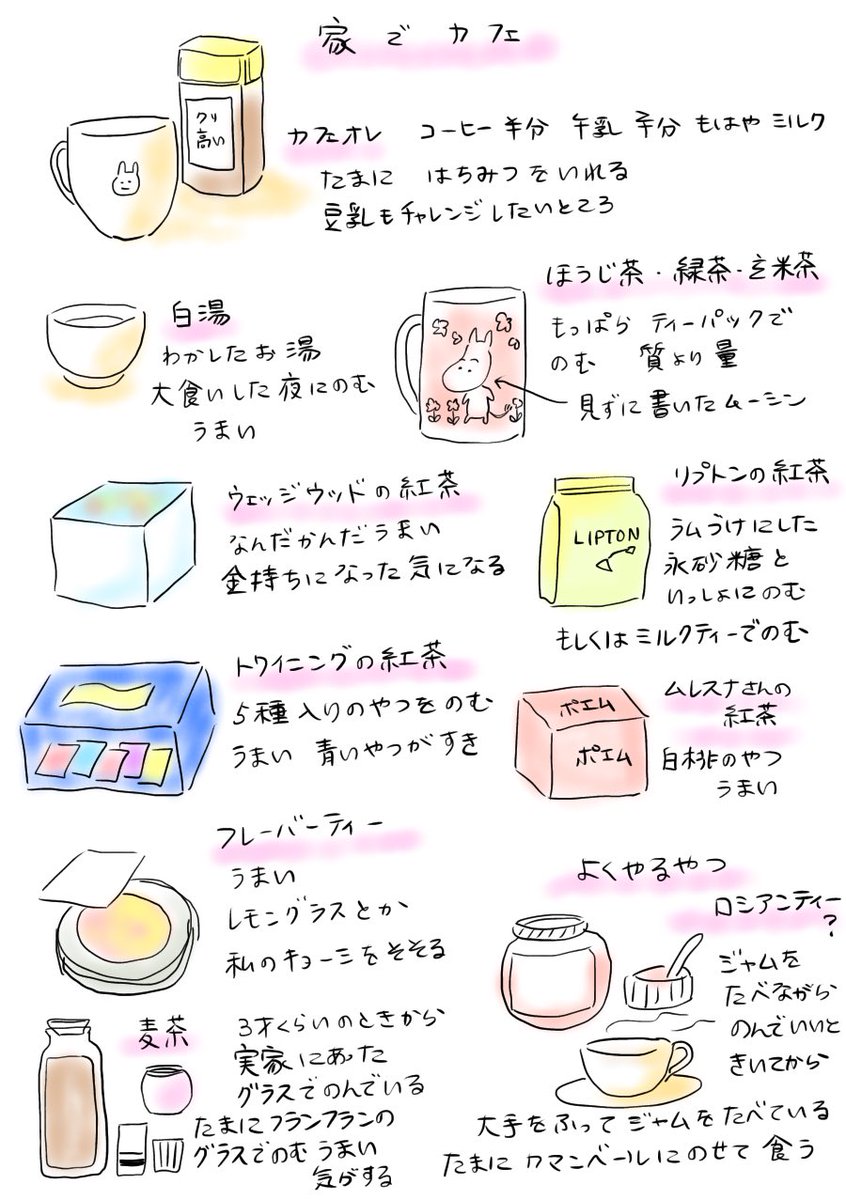 家でカフェ
クリ
高い
カフェオレ コーヒー半分 牛乳半分 もはやミルク
たまに はちみつをいれる
豆乳もチャレンジしたいところ
白湯
わかしたお湯
大食いした夜にのむ
うまい
ほうじ茶・緑茶・玄米茶
もっぱら ティーパックで
のむ 質より量
見ずに書いたムーシン
ウェッジウッドの紅茶
なんだかんだうまい
金持ちになった気になる
リプトンの紅茶
LIPTON
ラムうけにした
氷砂糖と
いっしょにのむ
もしくはミルクティーでのむ
トワイニングの紅茶
5種入りのやつをのむ
うまい 青いやつがすき
ムレスナさんの
紅茶
ポエム
ポエム
白桃のやつ
うまい
フレーバーティー
うまい
レモングラスとか
私のキョーミをそそる
よくやるやつ
ロシアンティー
?
ジャムを
たべながら
のんでいいと
きいてから
大手をふってジャムをたべている
たまにカマンベールにのせて食う
麦茶
3才くらいのときから
実家にあった
グラスでのんでいる
たまにフランフランの
グラスでのむ うまい
気がする